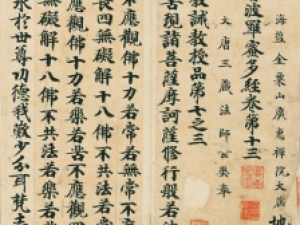 海鹽金粟山廣惠禪院大藏 地
波羅蜜多經卷第十三
大唐三藏法師玄奘奉
教誡教授品第七之三
善現諸菩薩摩訶薩修行般若波
不應觀佛十力若常若無常不
無礙解十八佛不共法若常
不應觀佛十力若樂若苦不應四
畏四無礙解十八佛不共法若樂
於世尊功德我歎少分耳梵志